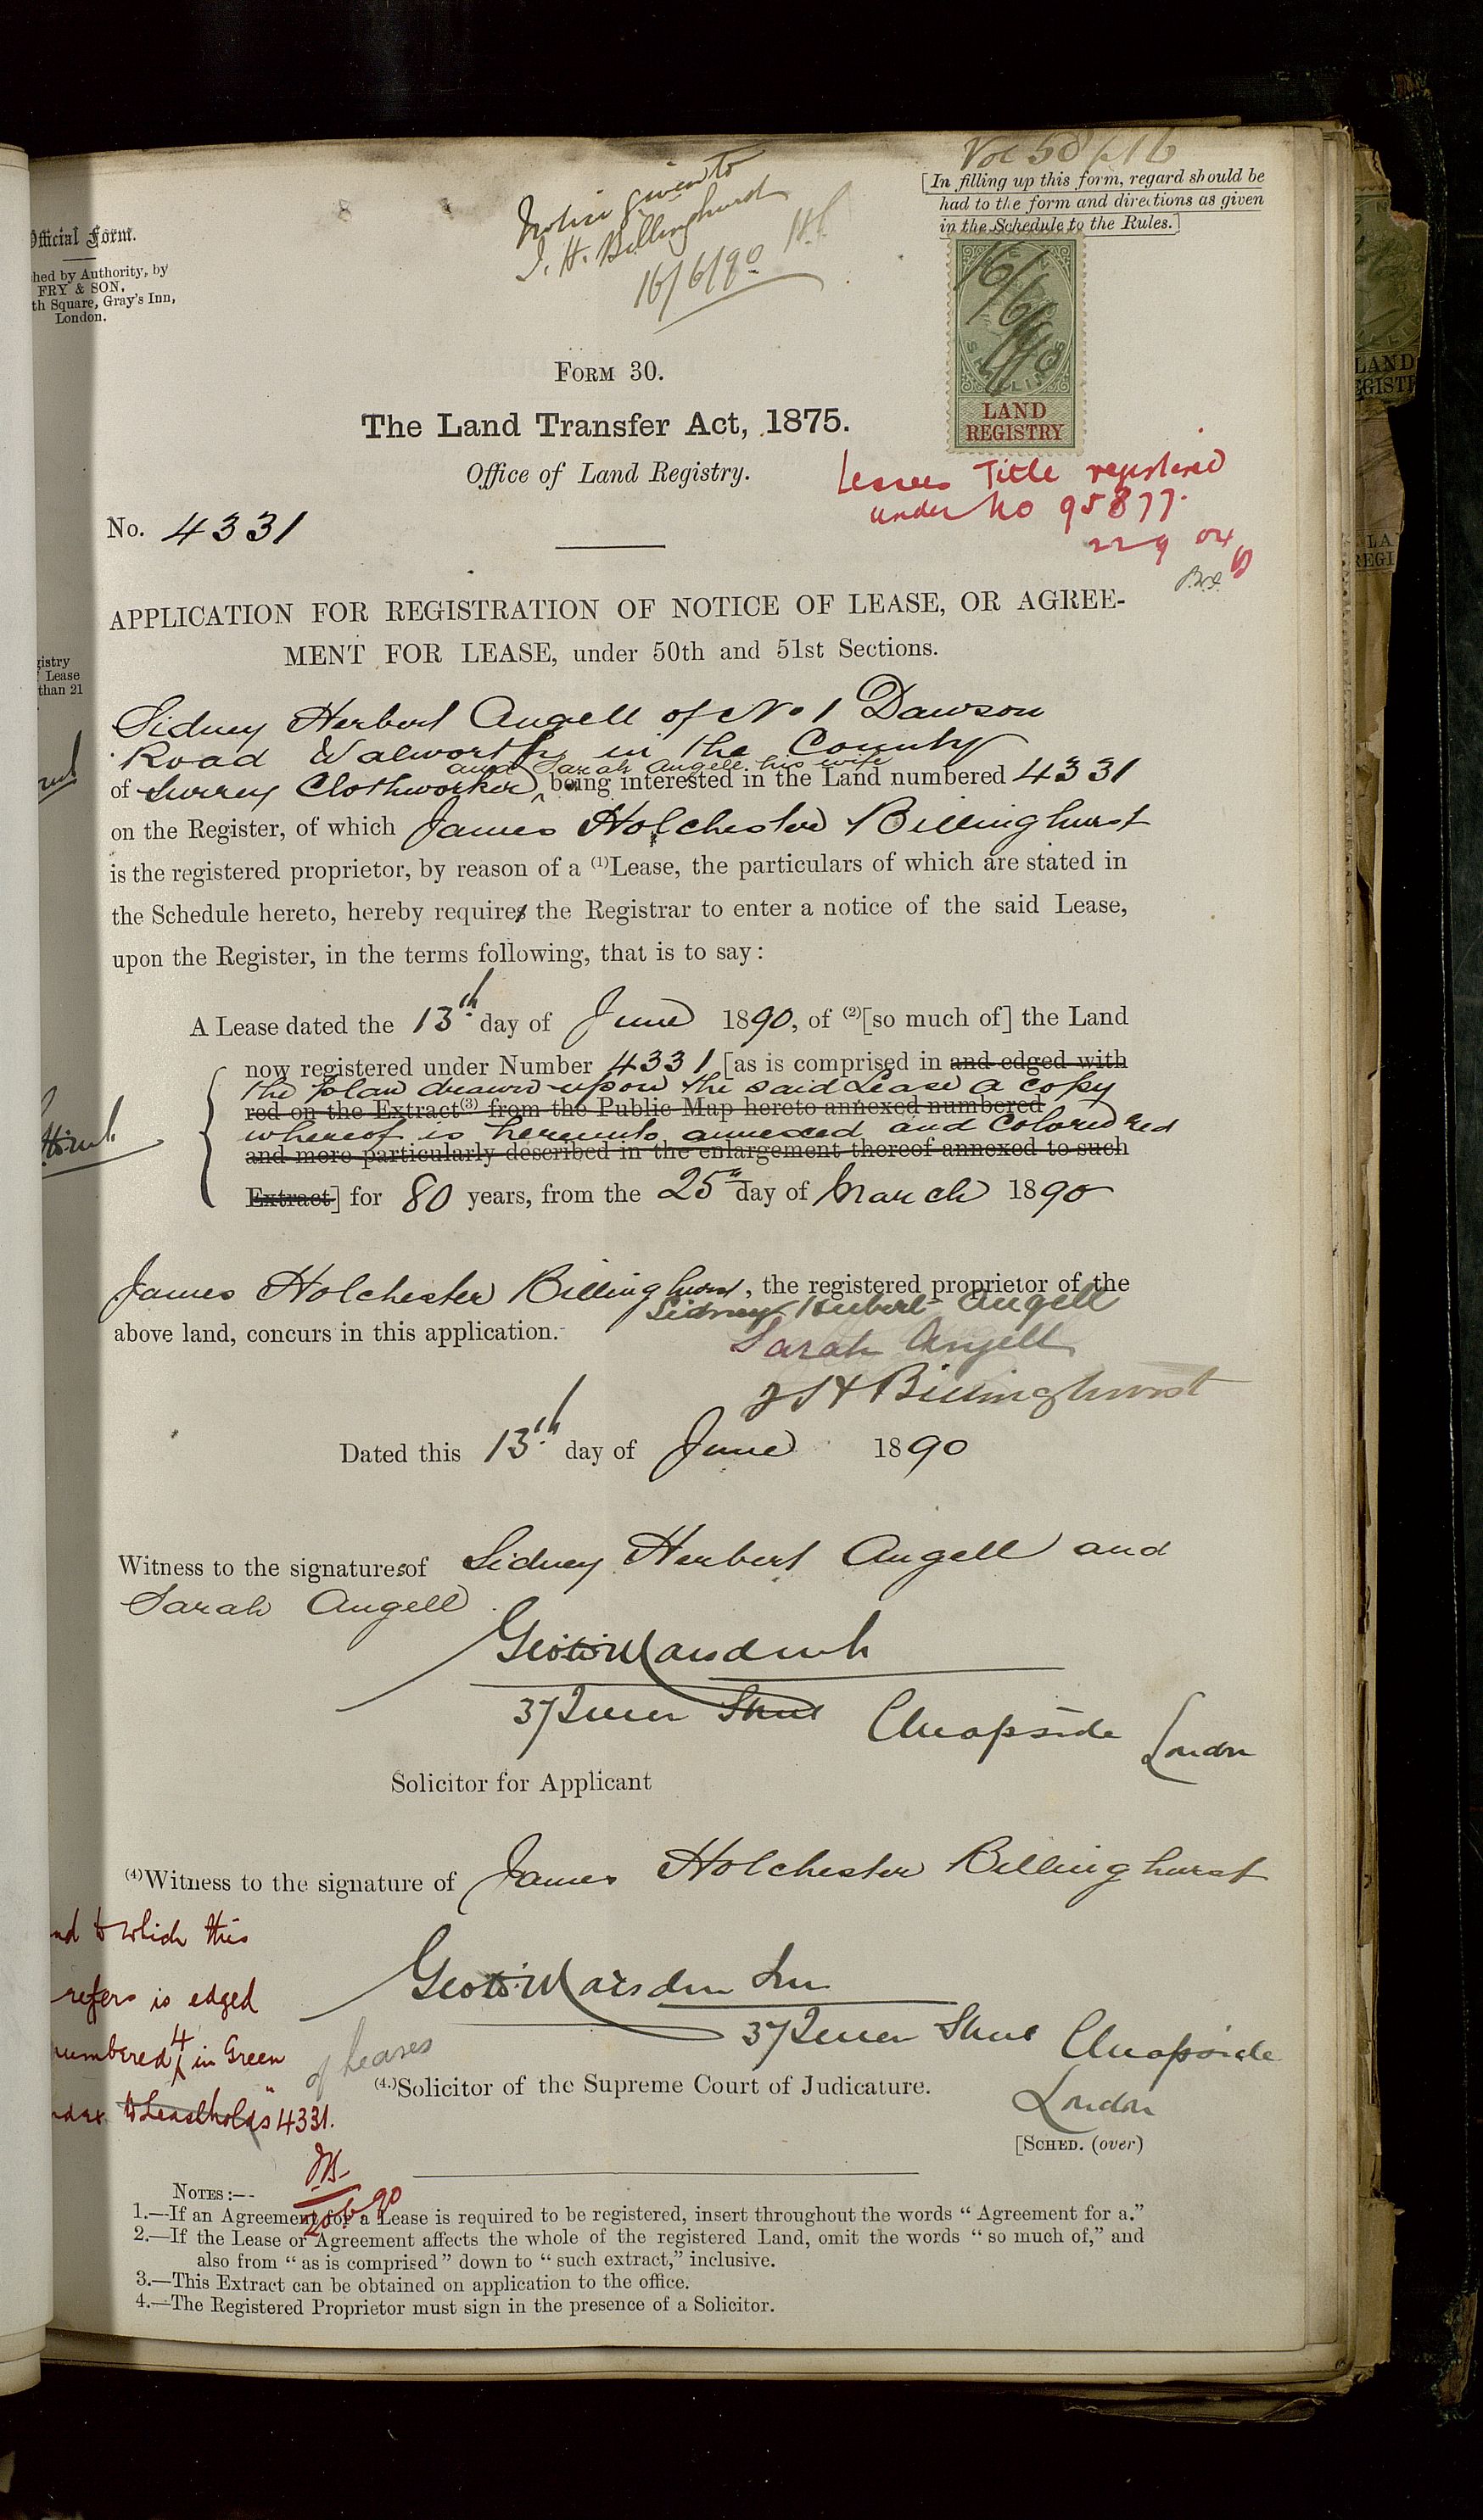 Vol 58 p 16
[In filling up this form, regard should be
had to the form and directions as given
in the Schedule to the Rules.]
Notice given to
J. H. Billinghurst
16/6/90
Official Form.
hed by Authority, by
FRY & SON,
th Square, Gray's Inn,
London.
16/6/90
LAND
REGISTRY
FORM 30.
The Land Transfer Act, 1875.
Office of Land Registry.
Lessees Title registered
under No 95877.
22 9 04
No. 4331
APPLICATION FOR REGISTRATION OF NOTICE OF LEASE, OR AGREE-
MENT FOR LEASE, under 50th and 51st Sections.
gistry
Lease
than 21
Sidney Herbert Angell of No 1 Dawson
Road Walworth in the County
and Sarah Angell his wife
of Surrey Clothworker, being interested in the Land numbered 4331
on the Register, of which James Holchester Billinghurst
is the registered proprietor, by reason of a (1)Lease, the particulars of which are stated in
the Schedule hereto, hereby requires the Registrar to enter a notice of the said Lease,
upon the Register, in the terms following, that is to say:
A Lease dated the 13th day of June 1890, of (2)[so much of] the Land
now registered under Number 4331 [as is comprised in and edged with
the plan drawn upon the said Lease a copy
red on the Extract(3) from the Public Map hereto annexed numbered
whereof is hereunto annexed and colored red
and more particularly described in the enlargement thereof annexed to such
Extract] for 80 years, from the 25th day of March 1890
James Holchester Billinghurst, the registered proprietor of the
Sidney Herbert Angell
above land, concurs in this application.
Sarah Angell
J H Billinghurst
Dated this 13th day of June 1890
Witness to the signatures of Sidney Herbert Angell and
Sarah Angell
37 Queen Street Cheapside London
Solicitor for Applicant
(4)Witness to the signature of James Holchester Billinghurst
nd to which this
refers is edged
numbered 4 in Green
of Leases
ndex to Leaseholds 4331.
37 Queen Street Cheapside
(4.)Solicitor of the Supreme Court of Judicature.
London
[SCHED. (over)
20.6.90
NOTES:--
1.—If an Agreement for a Lease is required to be registered, insert throughout the words "Agreement for a."
2.—If the Lease or Agreement affects the whole of the registered Land, omit the words "so much of," and
also from "as is comprised" down to "such extract," inclusive.
3.—This Extract can be obtained on application to the office.
4.—The Registered Proprietor must sign in the presence of a Solicitor.